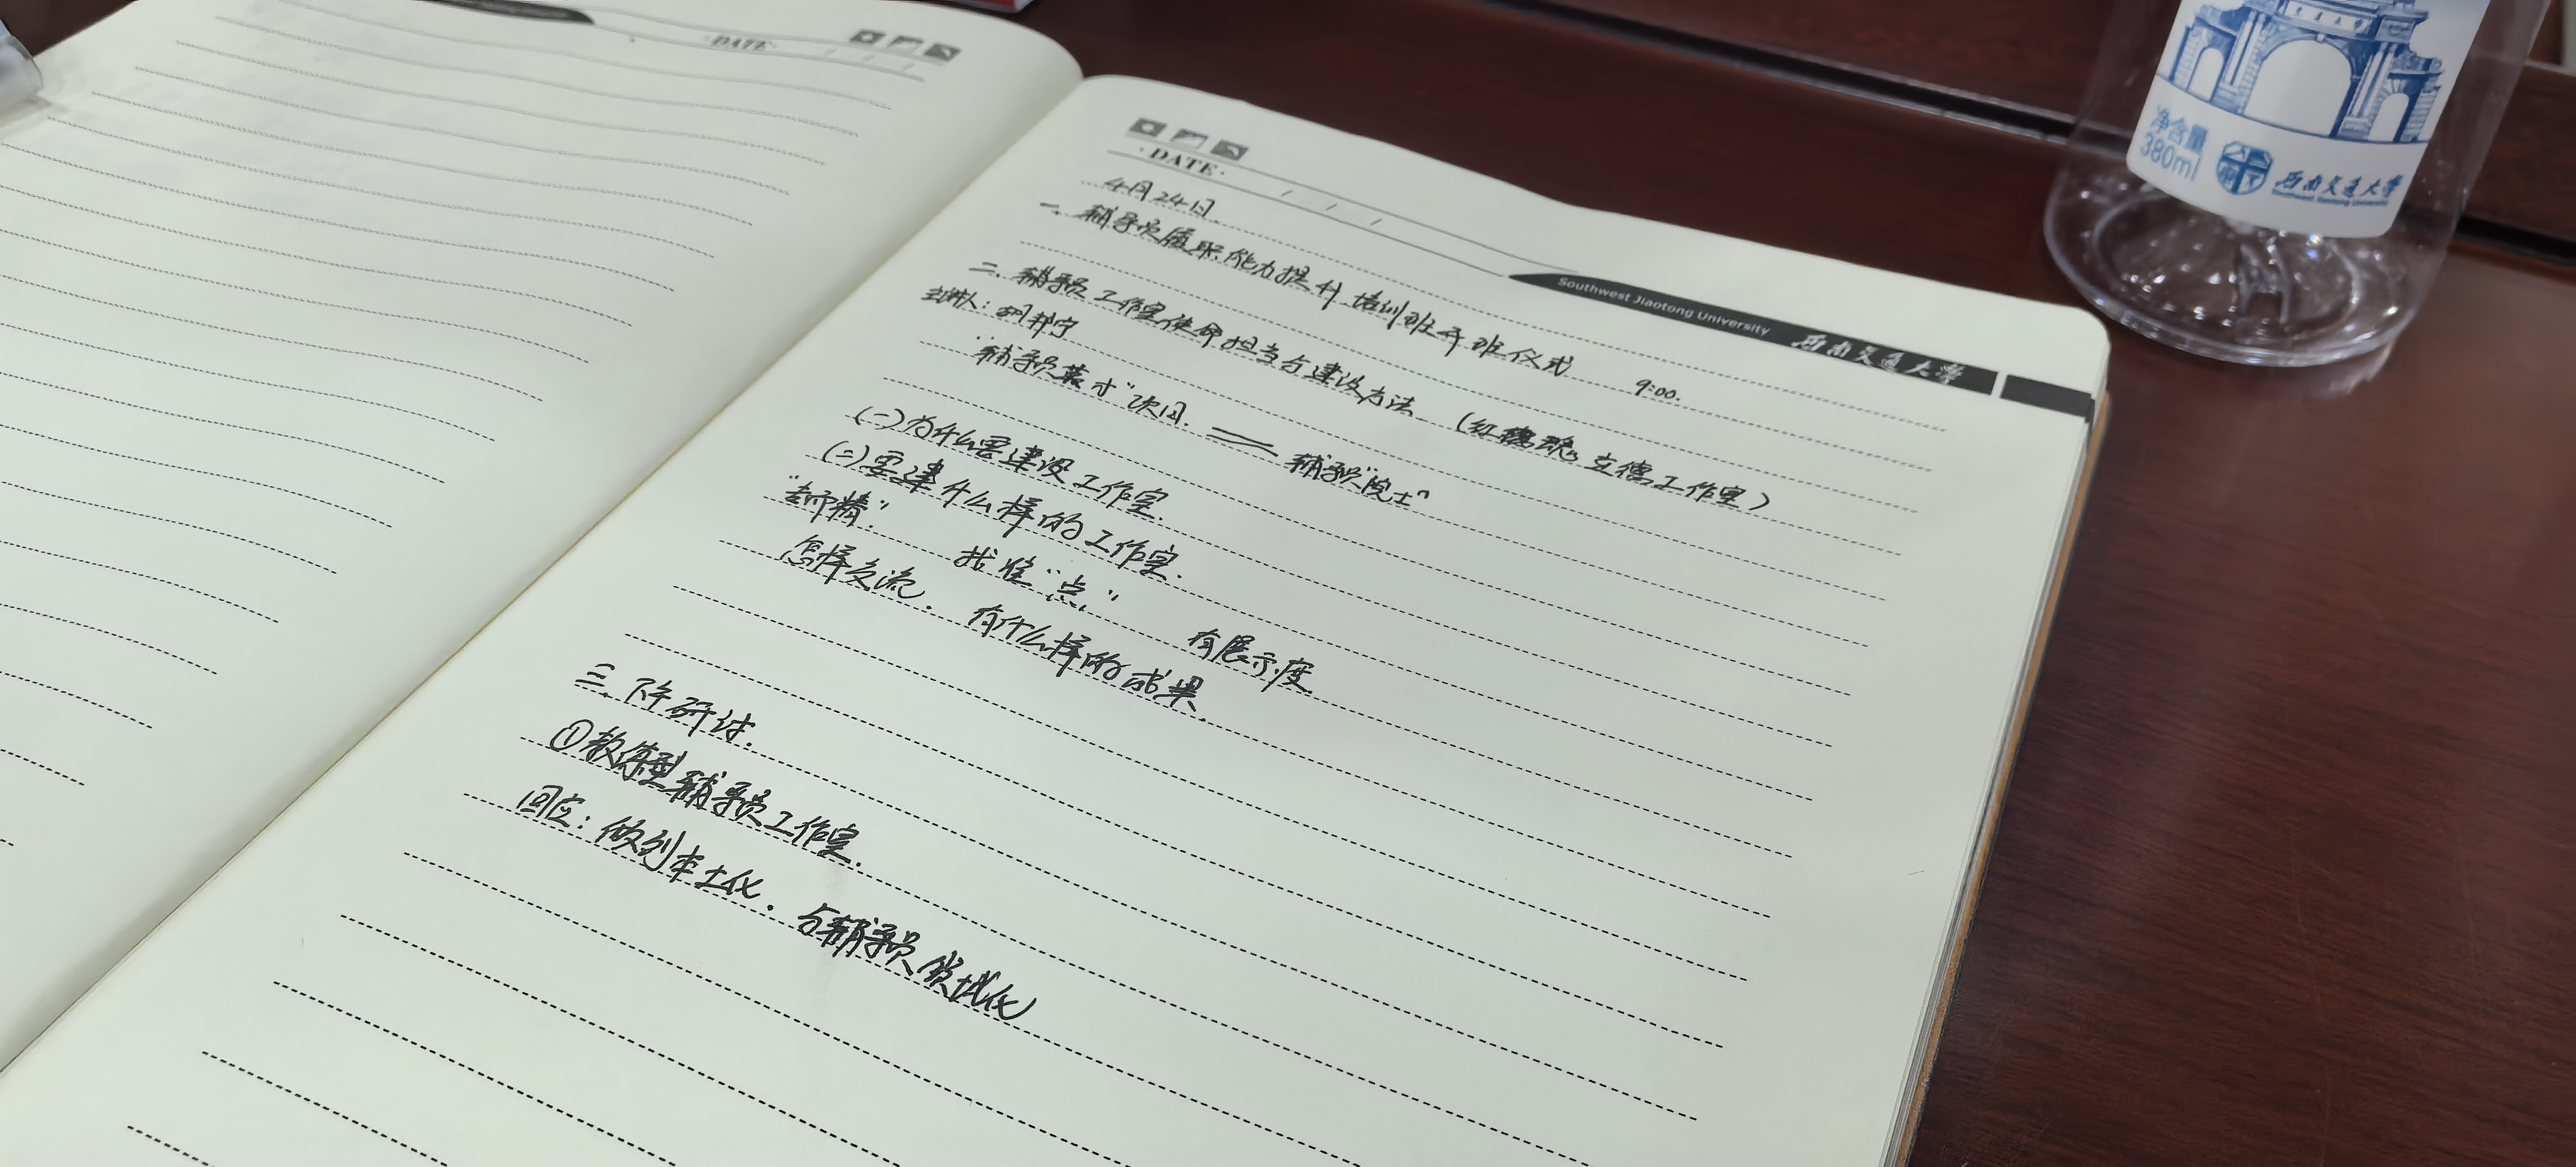 DATE
DATE
4月24日
一、辅导员履职能力提升培训班开班仪式 9:00.
二、辅导员工作室使命担当与建设方法 (红穗魂, 立德工作室)
主讲人: 胡邦宁
"次日. 辅导员"院士"
(一)为什么要建设工作室.
(二)要建什么样的工作室.
"专而精". 找准"点" 有展示度
怎样交流. 有什么样的成果.
三、下午研讨.
①教练型辅导员工作室.
回应: 做到本土化. 与辅导员领域化
Southwest Jiaotong University 西南交通大学
净含量
380ml
西南交通大学
Southwest Jiaotong University